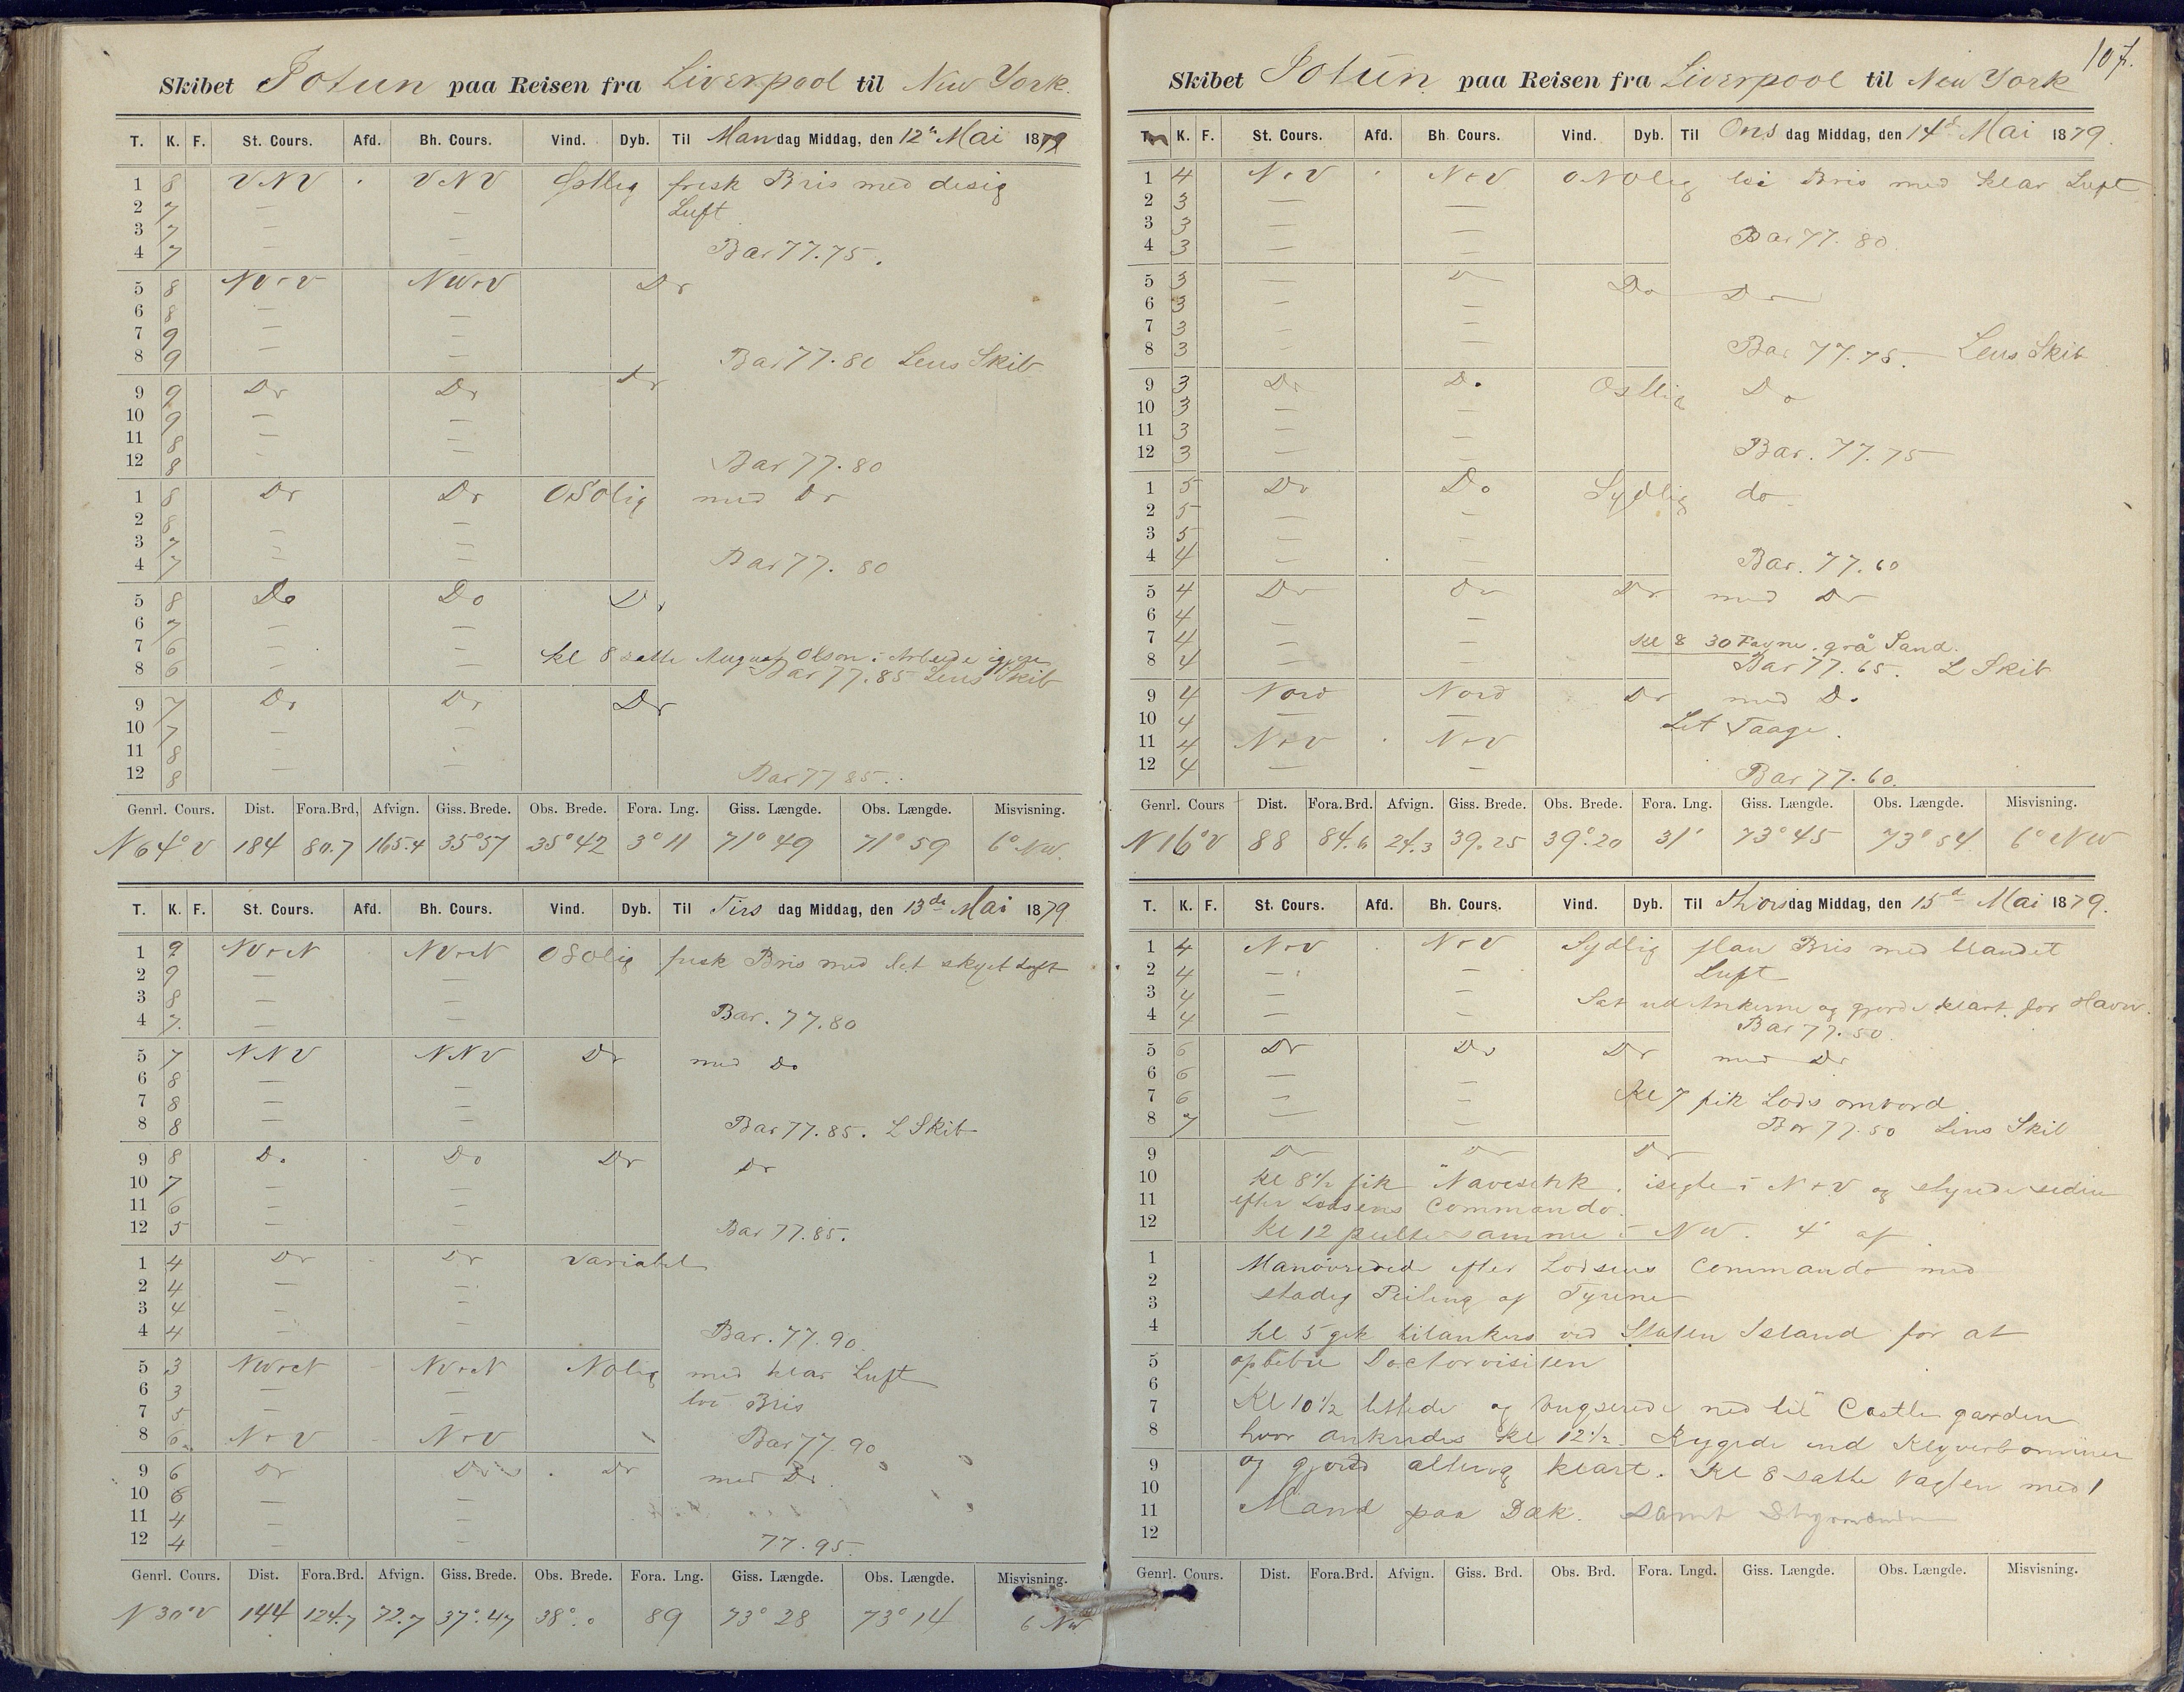 Skibet Jotun paa Reisen fra Liverpool til New York.
T. K. F. St. Cours. Afd. Bh. Cours. Vind. Dyb. Til Mandag Middag, den 12te Mai 1879
1 8 VNV " VNV Østlig frisk Bris med disig
2 7 — — Luft
3 7 — —
4 7 — — Bar 77.75.
5 8 NV+V NW+V Do
6 8 — —
7 9 — —
8 9 — — Bar 77.80 Lens Skib
9 9 Do Do Do
10 9 — —
11 8 — —
12 8 — — Bar 77.80
1 8 Do Do OSOlig med Do
2 8 —
3 7 — —
4 7 — — Bar 77.80
5 8 Do Do Do
6 7 — —
7 6 — — Kl 8 satte August Olson i Arbeide igjen
8 6 — — Bar 77.85 Lens Skib
9 7 Do Do Do
10 7 — —
11 8 — —
12 8 — — Bar 77 85.
Genrl. Cours. Dist. Fora.Brd, Afvign. Giss. Brede. Obs. Brede. Fora. Lng. Giss. Længde. Obs. Længde. Misvisning.
N64°V 184 80.7 165.4 35°57 35°42 3°11 71°49 71°59 6° NW.
T. K. F. St. Cours. Afd. Bh. Cours. Vind. Dyb. Til Tirsdag Middag, den 13de Mai 1879.
1 9 NV+N NV+N OSOlig frisk Bris med let skyet Luft
2 9 — —
3 8 — —
4 7. — — Bar. 77.80
5 7 NNV NNV Do med Do
6 8 —
7 8 — —
8 8 — — Bar 77.85. L Skib
9 8 Do Do Do Do
10 7 — —
11 6 — —
12 5 — — Bar 77.85.
1 4 Do Do Variabel
2 4 — —
3 4 — —
4 4 — — Bar. 77.90.
5 3 NW+N NV+N NOlig med klar Luft
6 3 — — löi Bris
7 5 — —
8 6 N+V N+V Bar 77.90
9 6 Do Do Do med Do
10 6 — —
11 4 — —
12 4 — — 77.95.
Genrl. Cours. Dist. Fora.Brd. Afvign. Giss. Brede. Obs. Brede. Fora. Lng. Giss. Længde. Obs. Længde. Misvisning.
N30°V 144 124.7 72.7 37°.47 38°.0 89 73°28 73°14 6 NW
107.
Skibet Jotun paa Reisen fra Liverpool til New York
T. K. F. St. Cours. Afd. Bh. Cours. Vind. Dyb. Til Onsdag Middag, den 14de Mai 1879.
1 4 N+V " N+V ONOlig löi Bris med klar Luft
2 3 — —
3 3 — —
4 3 — — Bar 77.80.
5 3 — Do Do
6 3 — —
7 3 — —
8 3 — — Bar 77.75. Lens Skib
9 3 Do Do Ostlig Do
10 3 — —
11 3 — —
12 3 — — Bar. 77.75
1 5 Do Do Sydlig do
2 5 — —
3 5 — —
4 4 — — Bar. 77.60
5 4 Do Do Do med Do
6 4 — —
7 4 — — Kl 8 30 Favne. grå Sand.
8 4 — — Bar 77.65. L Skib
9 4 Nord Nord Do med Do
10 4 — — Let Taage.
11 4 N+V " N+V
12 4 — — Bar 77.60.
Genrl. Cours Dist. Fora.Brd. Afvign. Giss. Brede. Obs. Brede. Fora. Lng. Giss. Længde. Obs. Længde. Misvisning.
N16°V 88 84.6 24.3 39.25 39°.20 31' 73°45 73°54 6° NW
T. K. F. St. Cours. Afd. Bh. Cours. Vind. Dyb. Til Thorsdag Middag, den 15d Mai 1879.
1 4 N+V N+V Sydlig flau Bris med blandet
2 4 — — Luft
3 4 — — Sat ud Ankerne og gjorde klart for Havn.
4 4 — — Bar 77.50.
5 6 Do Do Do med Do
6 6 — —
7 6 — — Kl 7 fik Lods ombord
8 7 — — Bar 77.50 Lens Skib
9 Do Do Do
10 Kl 8½ fik "Navesink" isigte i N+V og styrede siden
11 efter Lodsens Commando.
12 Kl 12 peilte samme i NW. 4' af
1 Manövrerede efter Lodsens Commando med
2 stadig Peiling af Fyrene
3
4 Kl. 5 gik tilankers ved Staten Island for at
5 opbebie Doctorvisiten
6
7 Kl 10½ lettede og bugserede ned til "Castle garden
8 hvor ankredes Kl 12½. Ryggede ind Klyverbommen
9 og gjord alting klart. Kl 8 satte Vagten med 1
10
11 Mand paa Dæk. samt Styrmanden
12
Genrl. Cours. Dist. Fora.Brd. Afvign. Giss. Brd. Obs. Brd. Fora. Lngd. Giss. Længde. Obs. Længde. Misvisning.